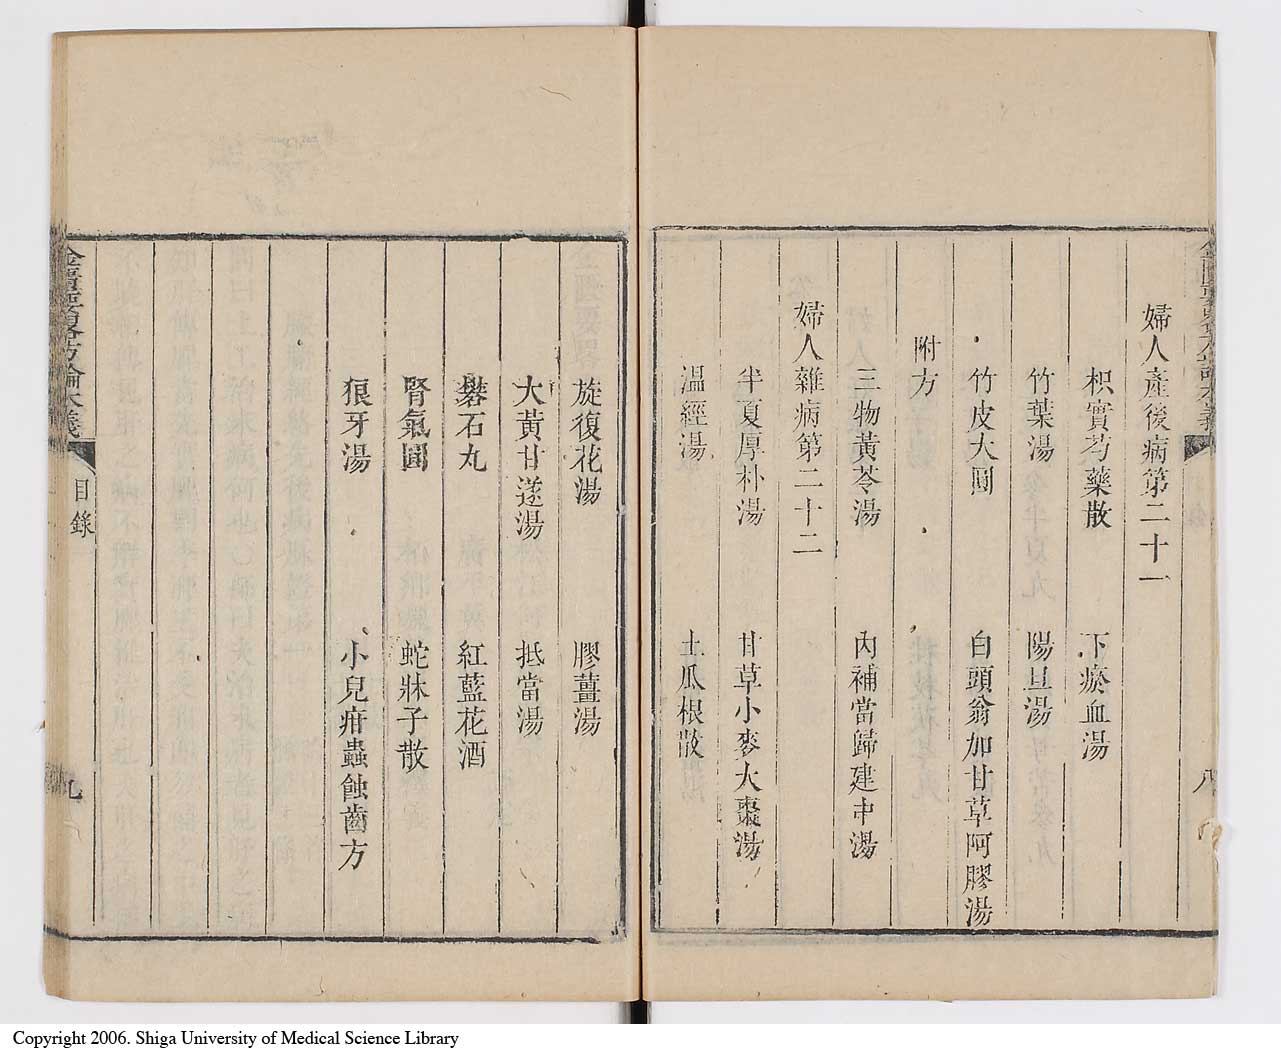 婦人產後病第二十一
枳實芍藥散 下瘀血湯
竹葉湯 陽旦湯
竹皮大圓 白頭翁加甘草阿膠湯
附方
三物黃芩湯 內補當歸建中湯
婦人雜病第二十二
半夏厚朴湯 甘草小麥大棗湯
溫經湯 土瓜根散
八
旋復花湯 膠薑湯
大黃甘遂湯 抵當湯
礬石丸 紅藍花酒
腎氣圓 蛇牀子散
狼牙湯 小兒疳蟲蝕齒方
金匱要畧方論本義 目錄 九
Copyright 2006. Shiga University of Medical Science Library